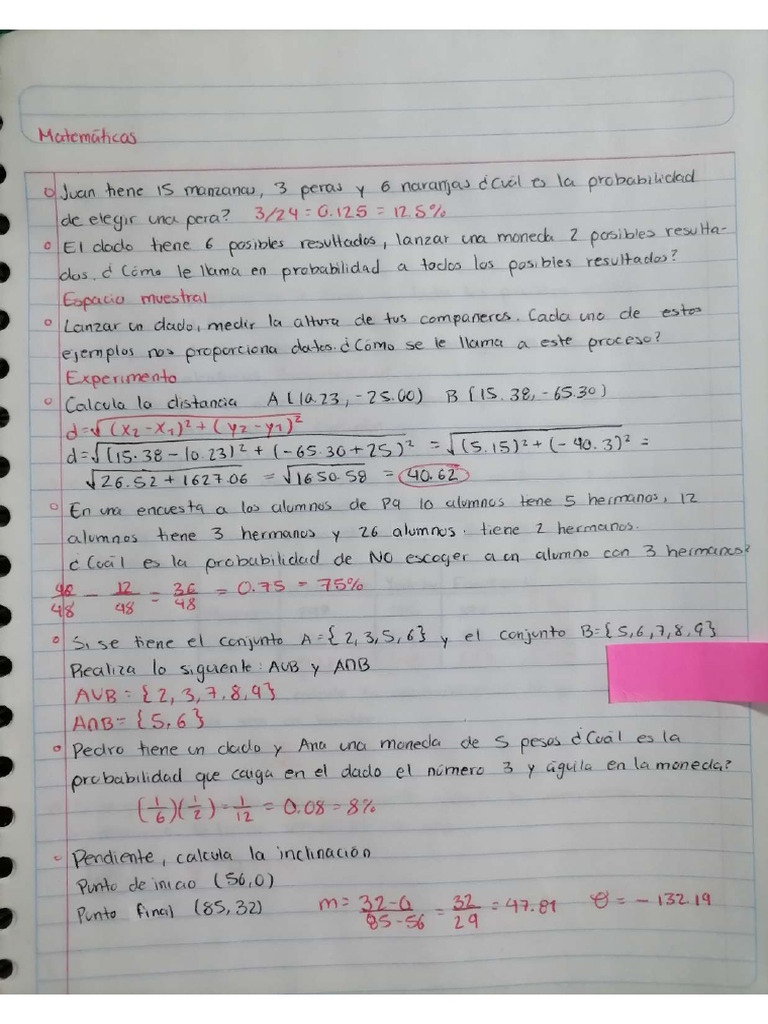 Matemáticas
Juan tiene 15 manzanas, 3 peras y 6 naranjas ¿Cuál es la probabilidad
de elegir una pera? 3/24 = 0.125 = 12.5%
El dado tiene 6 posibles resultados, lanzar una moneda 2 posibles resulta-
dos. ¿Cómo le llama en probabilidad a todos los posibles resultados?
Espacio muestral
Lanzar un dado, medir la altura de tus compañeros. Cada uno de estos
ejemplos nos proporciona datos. ¿Cómo se le llama a este proceso?
Experimento
Calcula la distancia A(10.23, -25.00) B(15.38, -65.30)
d=√(x2-x1)²+(y2-y1)²
d=√(15.38-10.23)²+(-65.30+25)² = √(5.15)²+(-40.3)² =
√26.52+1627.06 = √1650.58 = 40.62
En una encuesta a los alumnos de P9 10 alumnos tiene 5 hermanos, 12
alumnos tiene 3 hermanos y 26 alumnos. tiene 2 hermanos.
¿Cuál es la probabilidad de NO escoger a un alumno con 3 hermanos?
48/48 - 12/48 = 36/48 = 0.75 = 75%
Si se tiene el conjunto A={2,3,5,6} y el conjunto B={5,6,7,8,9}
Realiza lo siguente: AUB y A∩B
AUB = {2,3,7,8,9}
A∩B = {5,6}
Pedro tiene un dado y Ana una moneda de 5 pesos ¿Cuál es la
probabilidad que caiga en el dado el número 3 y águila en la moneda?
(1/6)(1/2) = 1/12 = 0.08 = 8%
Pendiente, calcula la inclinación
Punto de inicio (56,0)
Punto final (85,32) m= 32-0/85-56 = 32/29 = 47.81 θ = -132.19